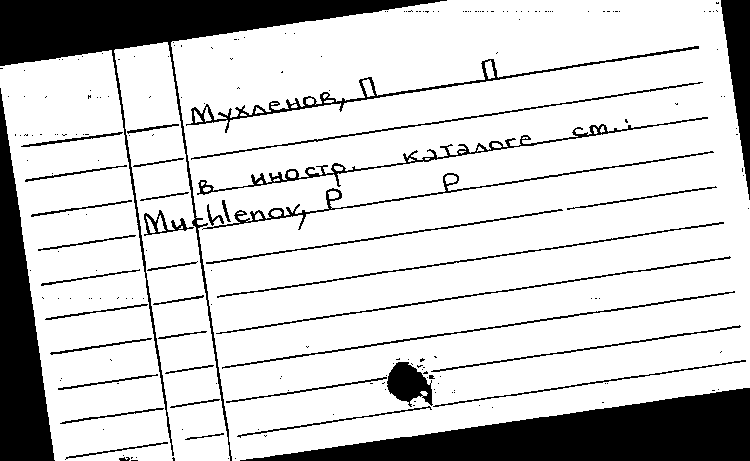 Мухленов, П П
в иностр. каталоге см.:
Muchlenov, P P